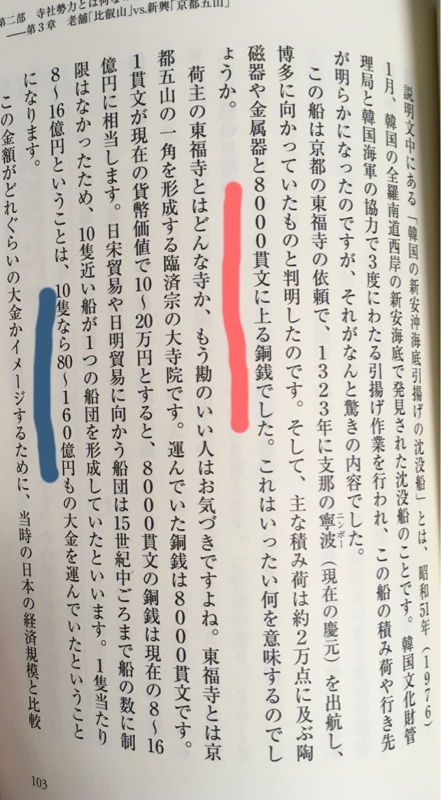 第二部　寺社勢力とは何な
――第３章　老舗「比叡山」vs.新興「京都五山」
説明文中にある「韓国の新安沖海底引揚げの沈没船」とは、昭和51年（1976）
１月、韓国の全羅南道西岸の新安海底で発見された沈没船のことです。韓国文化財管
理局と韓国海軍の協力で３度にわたる引揚げ作業を行われ、この船の積み荷や行き先
が明らかになったのですが、それがなんと驚きの内容でした。
この船は京都の東福寺の依頼で、１３２３年に支那の寧波（現在の慶元）を出航し、
ニンポー
博多に向かっていたものと判明したのです。そして、主な積み荷は約２万点に及ぶ陶
磁器や金属器と８０００貫文に上る銅銭でした。これはいったい何を意味するのでし
ょうか。
荷主の東福寺とはどんな寺か、もう勘のいい人はお気づきですよね。東福寺とは京
都五山の一角を形成する臨済宗の大寺院です。運んでいた銅銭は８０００貫文です。
１貫文が現在の貨幣価値で10〜20万円とすると、８０００貫文の銅銭は現在の８〜16
億円に相当します。日宋貿易や日明貿易に向かう船団は15世紀中ごろまで船の数に制
限はなかったため、10隻近い船が１つの船団を形成していたといいます。１隻当たり
８〜16億円ということは、10隻なら80〜１６０億円もの大金を運んでいたということ
になります。
この金額がどれぐらいの大金かイメージするために、当時の日本の経済規模と比較
103